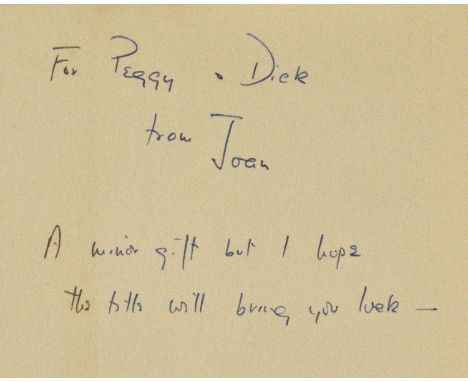 For Peggy & Dick
from Joan
A minor gift but I hope
the title will bring you luck —